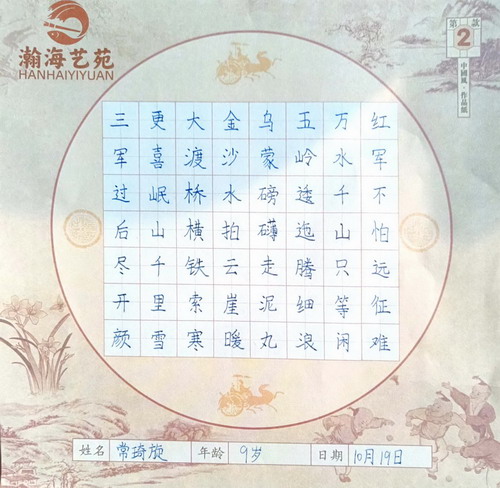 瀚海艺苑
HANHAIYIYUAN
第2款
中國風·作品紙
红军不怕远征难
万水千山只等闲
五岭逶迤腾细浪
乌蒙磅礴走泥丸
金沙水拍云崖暖
大渡桥横铁索寒
更喜岷山千里雪
三军过后尽开颜
姓名 常琦旋 年龄 9岁 日期 10月19日